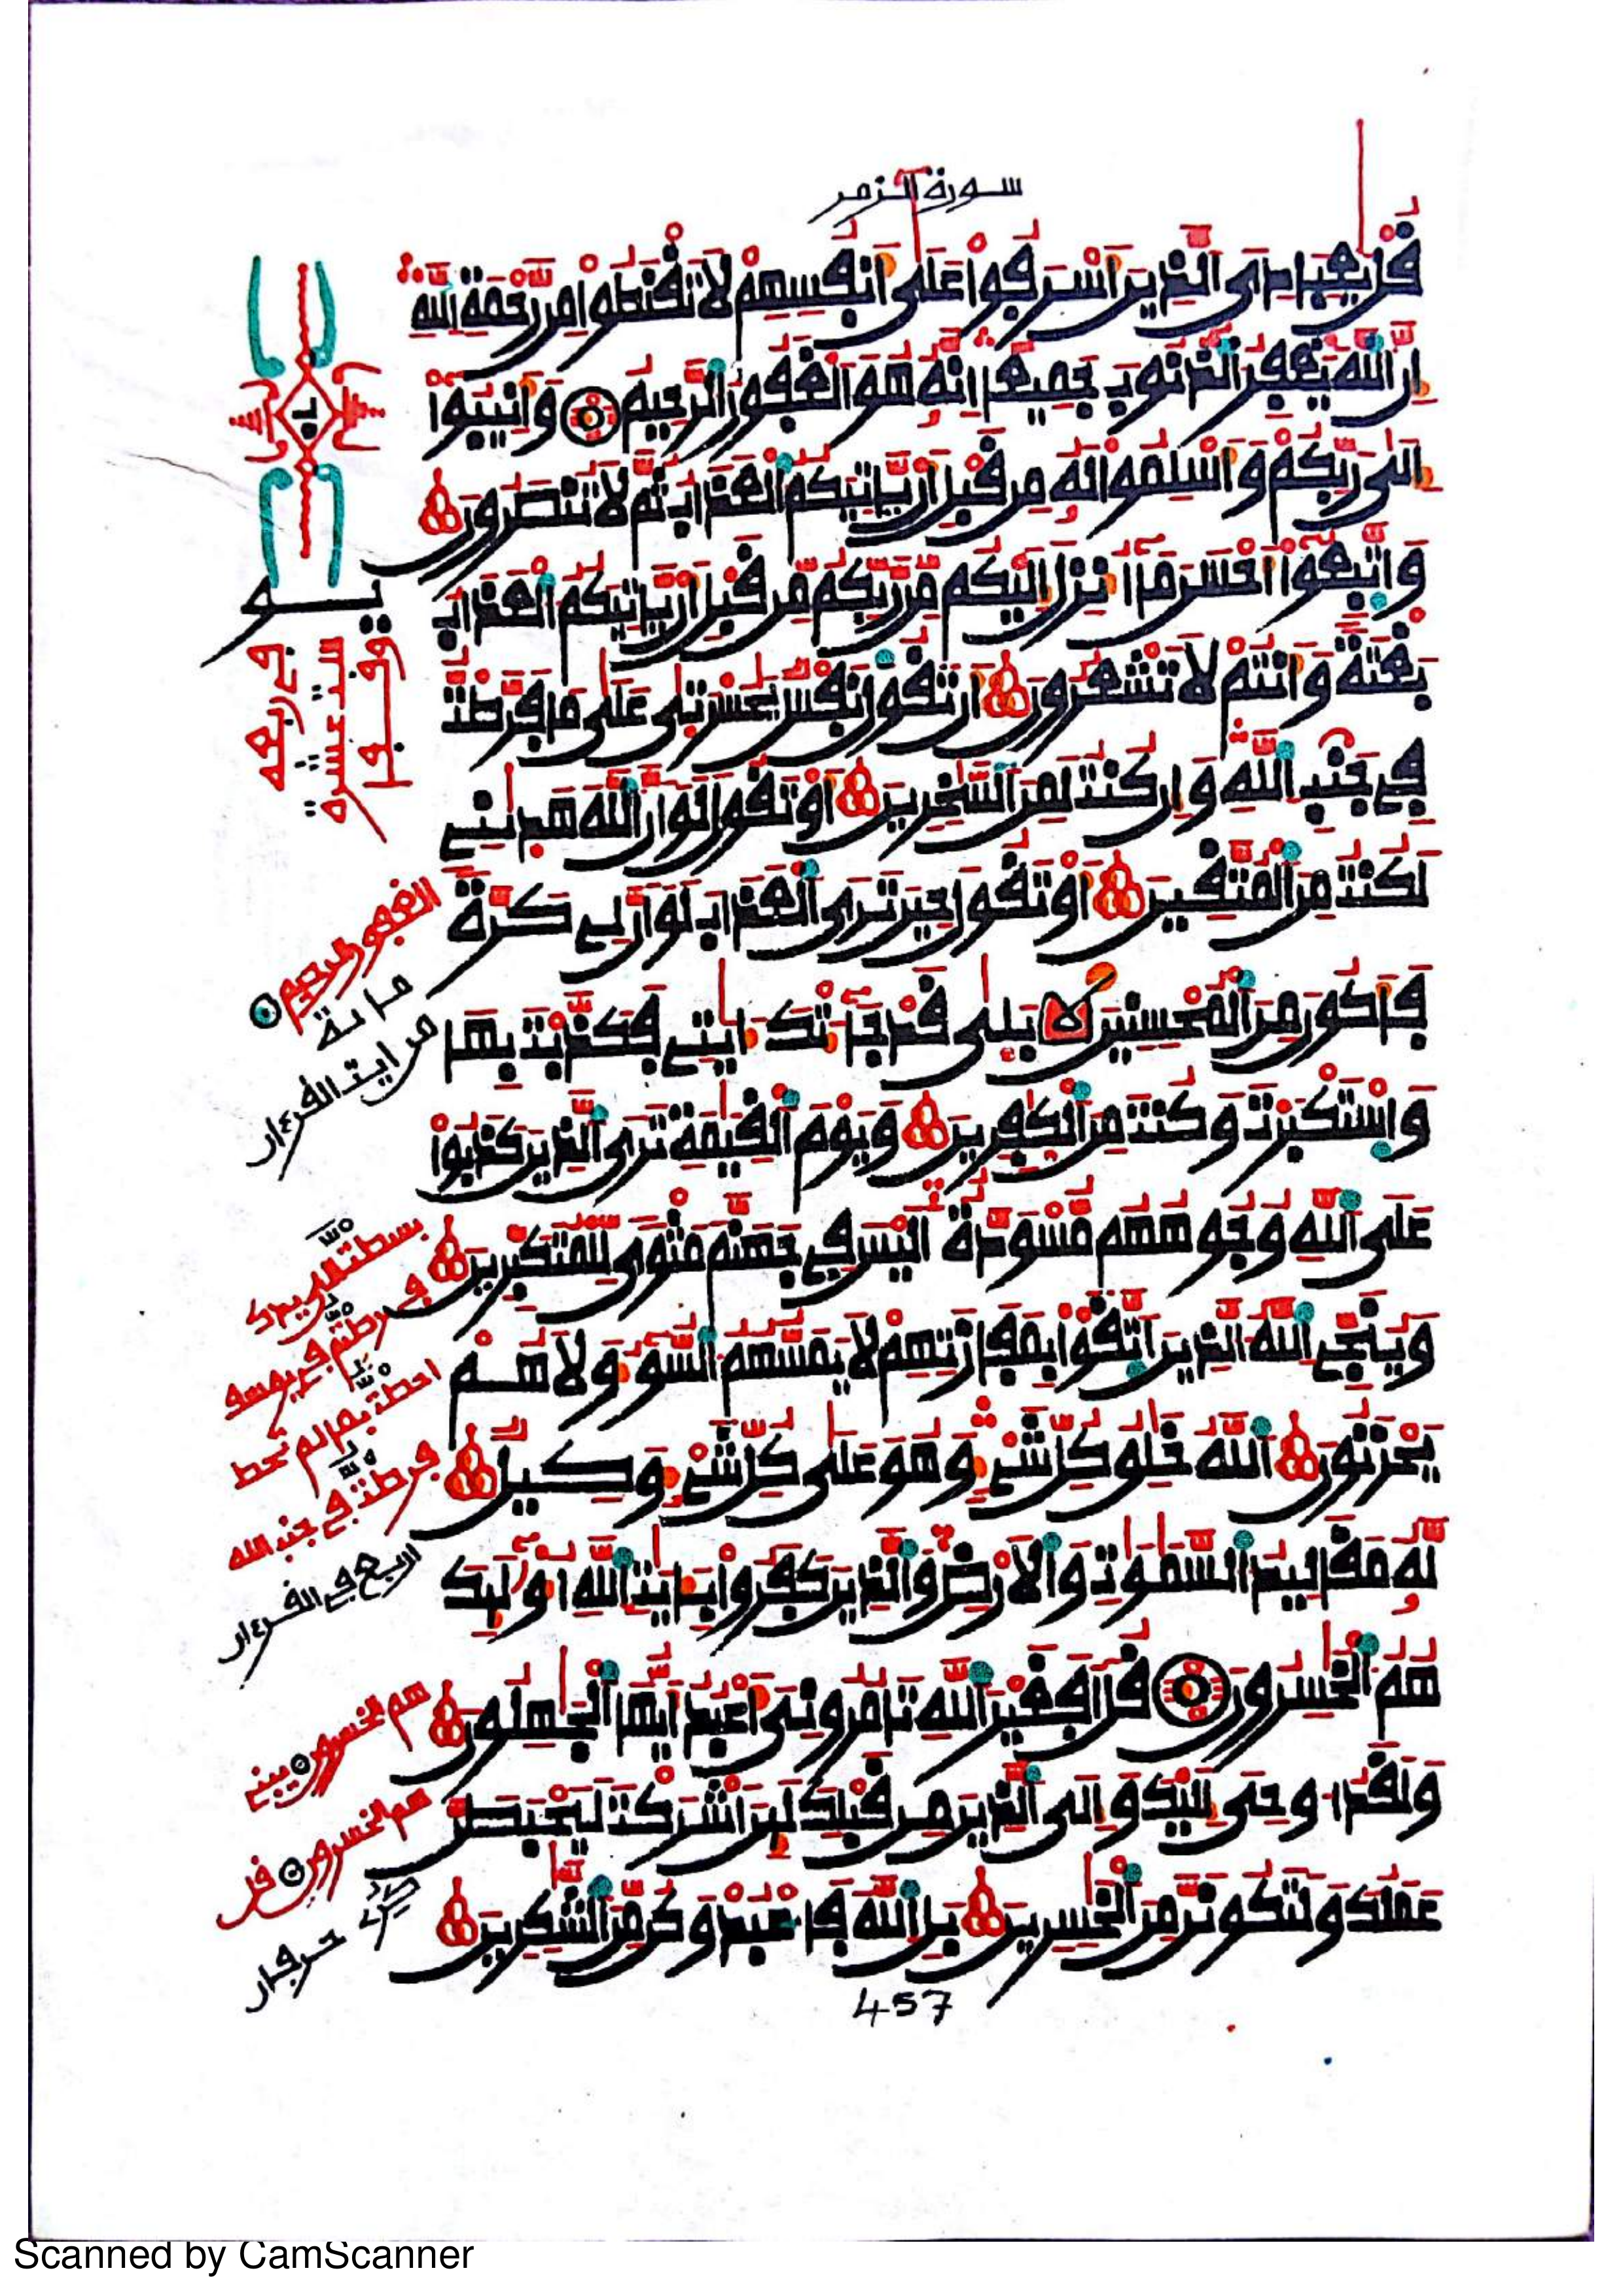 سورة الزمر
قل يعبادى الذين اسرفوا على انفسهم لا تقنطوا من رحمة الله
ان الله يغفر الذنوب جميعا انه هو الغفور الرحيم وانيبوا
الى ربكم واسلموا له من قبل ان ياتيكم العذاب ثم لا تنصرون
واتبعوا احسن ما انزل اليكم من ربكم من قبل ان ياتيكم العذاب
بغتة وانتم لا تشعرون ان تقول نفس يحسرتى على ما فرطت
في جنب الله وان كنت لمن السخرين او تقول لو ان الله هدىني
لكنت من المتقين او تقول حين ترى العذاب لو ان لي كرة
فاكون من المحسنين بلى قد جاءتك ءايتي فكذبت بها
واستكبرت وكنت من الكفرين ويوم القيمة ترى الذين كذبوا
على الله وجوههم مسودة اليس في جهنم مثوى للمتكبرين
وينجي الله الذين اتقوا بمفازتهم لا يمسهم السوء ولا هم
يحزنون الله خلق كل شيء وهو على كل شيء وكيل
له مقاليد السموت والارض والذين كفروا بايت الله اوليك
هم الخسرون قل افغير الله تامرونى اعبد ايها الجهلون
ولقد اوحى اليك والى الذين من قبلك لين اشركت ليحبطن
عملك ولتكونن من الخسرين بل الله فاعبد وكن من الشكرين
في ربعه
ستة عشرة
وقفا
الغفور الرحيم
مائة
من ايت القرءان
بسطت الي يدك
فرطتم في يوسف
احطت بما لم تحط
فرطت في جنب الله
اربع في القرءان
هم الخسرون يبني
هم الخسرون قل
حرفان
457
Scanned by CamScanner